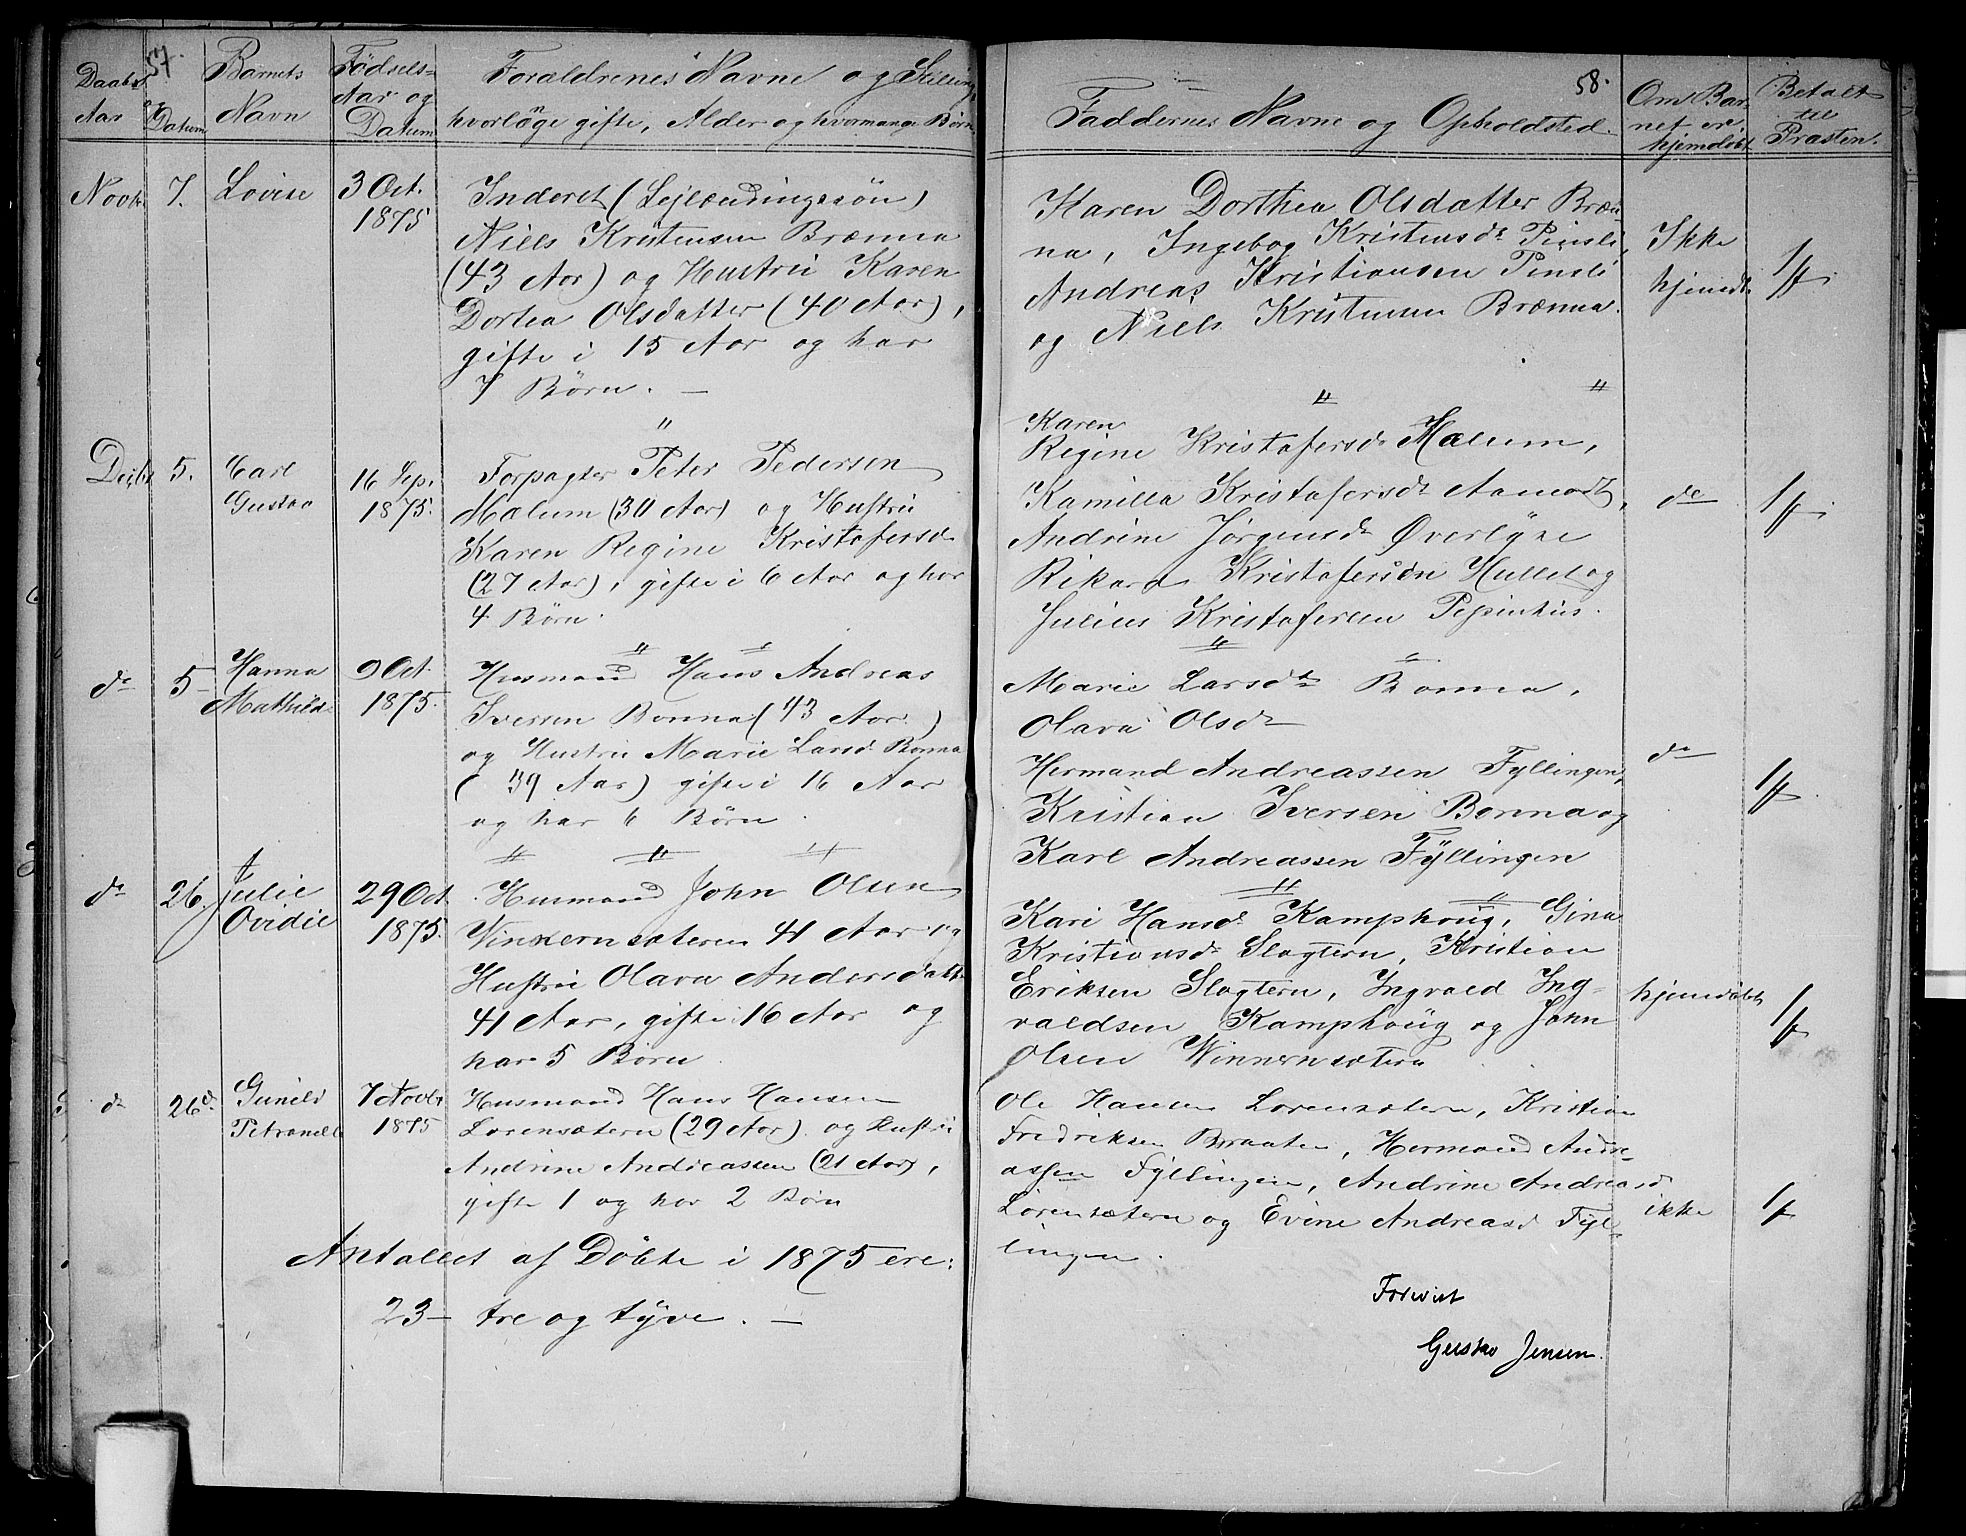 57.
Daabs Aar og Datum
Barnets Navn
Fødsels-Aar og Datum
Forældrenes Navne og Stilling,
hvorlænge gifte, Alder og hvormange Børn
Novb. 7. Lovise 3 Oct. 1875
Inderst (Lejlændingssøn)
Niels Kristensen Brænna
(43 Aar) og Hustru Karen
Dortea Olsdatter (40 Aar),
gifte i 15 Aar og har
7 Børn. —
"
Decbr 5. Carl Gustav 16 Sep. 1875.
Forpagter Peter Pedersen
Mælum (30 Aar) og Hustru
Karen Regine Kristofersd.
(27 Aar), gifte i 6 Aar og har
4 Børn.
do 5 Hanna Mathilde 9 Oct. 1875.
Husmand Hans Andreas
Iversen Bonna (43 Aar)
og Hustru Marie Larsd. Bonna
(39 Aar) gifte i 16 Aar
og har 6 Børn.
do 26. Julie Ovidie 29 Oct 1875.
Husmand John Olsen
Winnernsæteren 41 Aar og
Hustru Olava Andersdatt.
41 Aar, gifte 16 Aar og
har 5 Børn.
do 26d. Gunild Petronelle 7 Novbr 1875
Husmand Hans Hansen
Lorensætern (29 Aar) og Hustru
Andrine Andreassen (21 Aar),
gifte 1 og har 2 Børn
Antallet af Døbte i 1875 ere:
23 — tre og tyve. —
58.
Faddernes Navne og Opholdsted.
Om Barnet er hjemdøbt
Betalt til Præsten.
Karen Dorthea Olsdatter Bræn-
na, Ingebog Kristensdt Pinsli,
Andreas Kristiansen Pinsli
og Niels Kristensen Brænna.
Ikke
hjemdt.
Karen
Regine Kristofersdt Mælum,
Kamilla Kristofersdt Aamodt,
Andrine Jørgensdt Øverbyne
Rikard Kristofersøn Hullet og
Julius Kristofersen Pepinhus.
do
Marie Larsdt Bonna,
Olava Olsdt
Hermand Andreassen Fyllingen,
Kristian Iversen Bonna og
Karl Andreassen Fyllingen
do
Kari Hansdt Kamphoug, Gina
Kristiansdt Slagtern, Kristian
Eriksen Slagtern, Ingvald Ing-
valdsen Kamphoug og John
Olsen Winnernsætern
hjemdøbt
Ole Hansen Lorensætern, Kristian
Fredriksen Braaten, Hermand Andre-
assen Fyllingen, Andrine Andreasd
Lorensætern og Evine Andreasd Fyl-
lingen.
ikke
Forevist
Gustav Jensen.